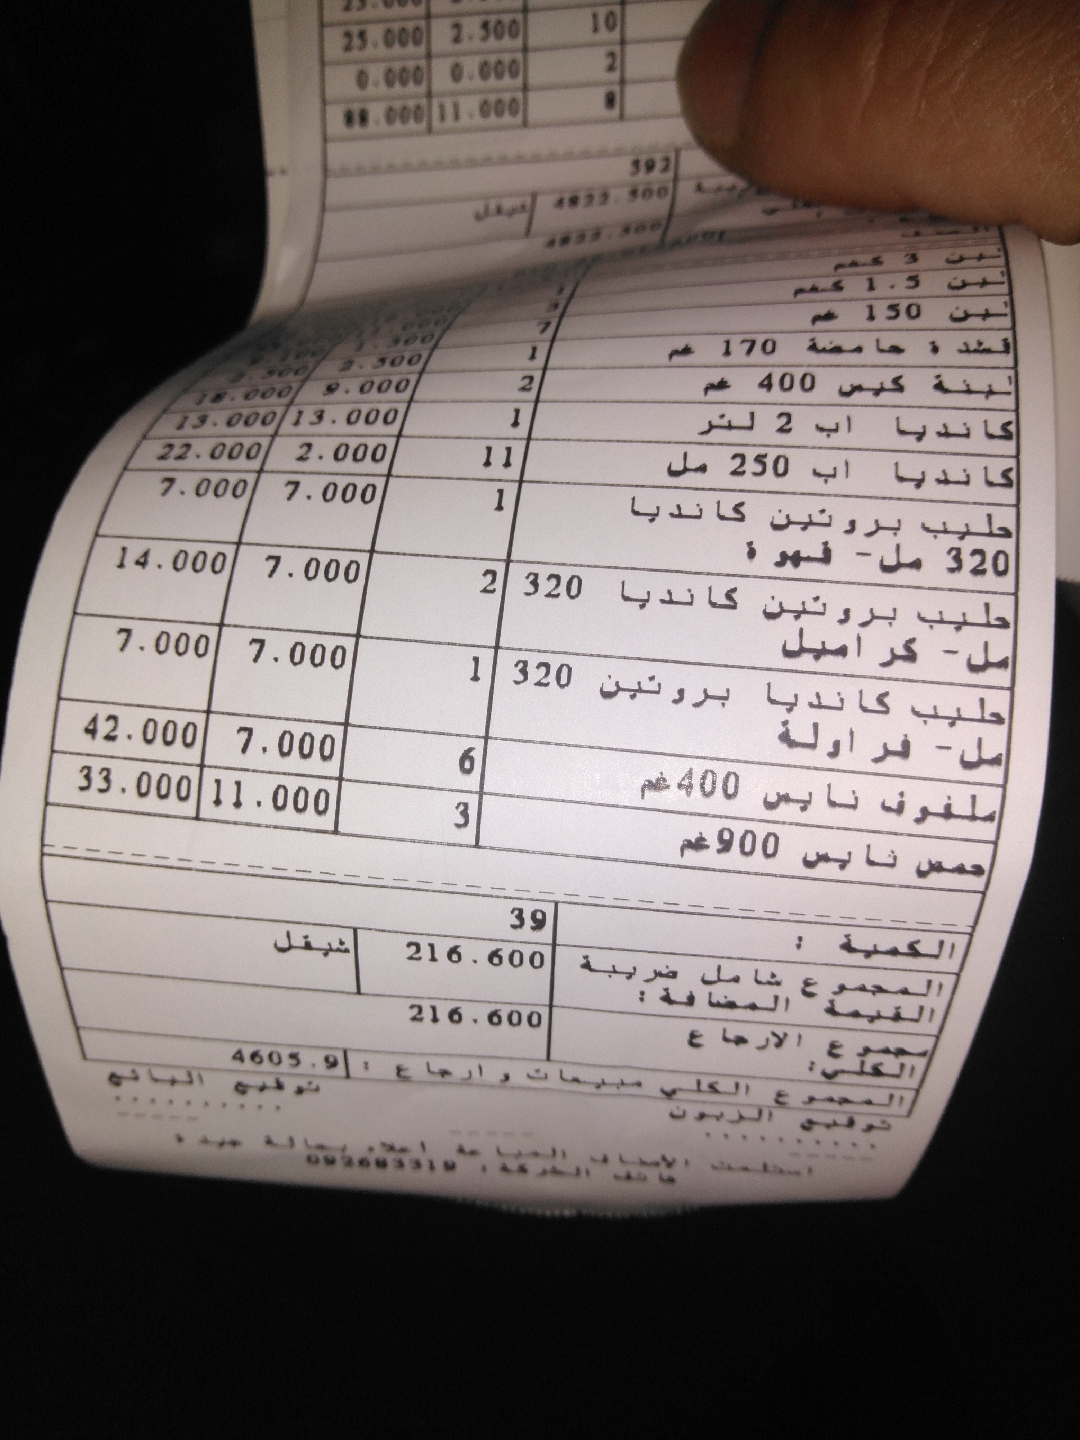 10 2.500 25.000
2 0.000 0.000
8 11.000 88.000
392
4822.500 شيقل
4822.500
الصنف
لبن 3 كغم
لبن 1.5 كغم
لبن 150 غم 7 1.300
قشدة حامضة 170 غم 1 2.500 2.500
لبنة كيس 400 غم 2 9.000 18.000
كانديا اب 2 لتر 1 13.000 13.000
كانديا اب 250 مل 11 2.000 22.000
حليب بروتين كانديا 1 7.000 7.000
320 مل- قهوة
حليب بروتين كانديا 320 2 7.000 14.000
مل- كراميل
حليب كانديا بروتين 320 1 7.000 7.000
مل- فراولة
ملفوف نايس 400غم 6 7.000 42.000
حمص نايس 900غم 3 11.000 33.000
الكمية : 39
المجموع شامل ضريبة 216.600 شيقل
القيمة المضافة:
مجموع الارجاع 216.600
الكلي:
المجموع الكلي مبيعات وارجاع : 4605.9
توقيع الزبون توقيع البائع
استلمت الأصناف المباعة أعلاه بحالة جيدة
هاتف الشركة: 092683319